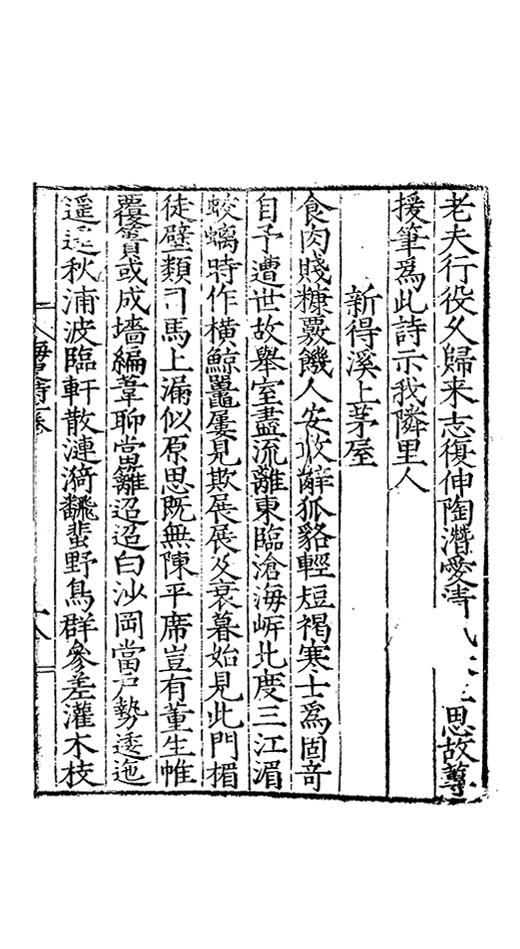 老夫行役久歸来志復伸陶潛愛清思故蓴
援筆爲此詩示我隣里人
新得溪上茅屋
食肉賤糠覈饑人安敢辭狐貉輕短褐寒士爲固竒
自予遭世故舉室盡流離東臨滄海㟁北度三江湄
蛟螭時作橫鯨鼉屢見欺展展及衰暮始見此門楣
徒壁類司馬上漏似原思既無陳平席豈有董生帷
覆簣或成墻編葦聊當籬迢迢白沙岡當戶勢逶迤
遥遥秋浦波臨軒散漣漪飜蜚野鳥群參差灌木枝